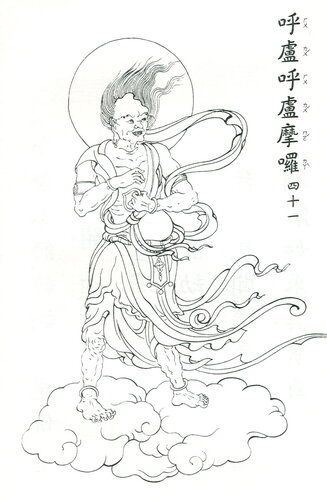 呼盧呼盧摩囉四十一